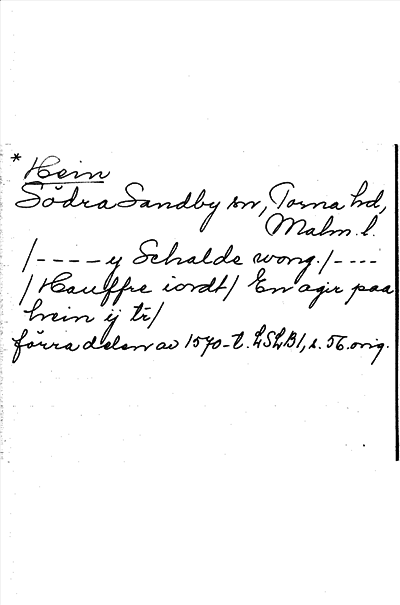 * Hein
Södra Sandby sn, Torna hd,
Malm. l.
/---- y Schalde wong./----
/ Hauffre iordt/ En ager paa
hrein ij tr/
förra delen av 1570-t. LSLB1, s. 56. orig.